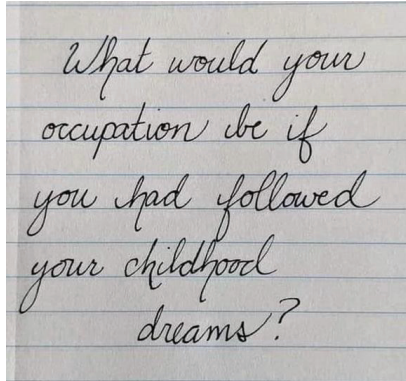 What would your
occupation be if
you had followed
your childhood
dreams?